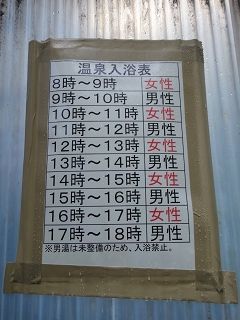 温泉入浴表
8時～9時 女性
9時～10時 男性
10時～11時 女性
11時～12時 男性
12時～13時 女性
13時～14時 男性
14時～15時 女性
15時～16時 男性
16時～17時 女性
17時～18時 男性
※男湯は未整備のため、入浴禁止。